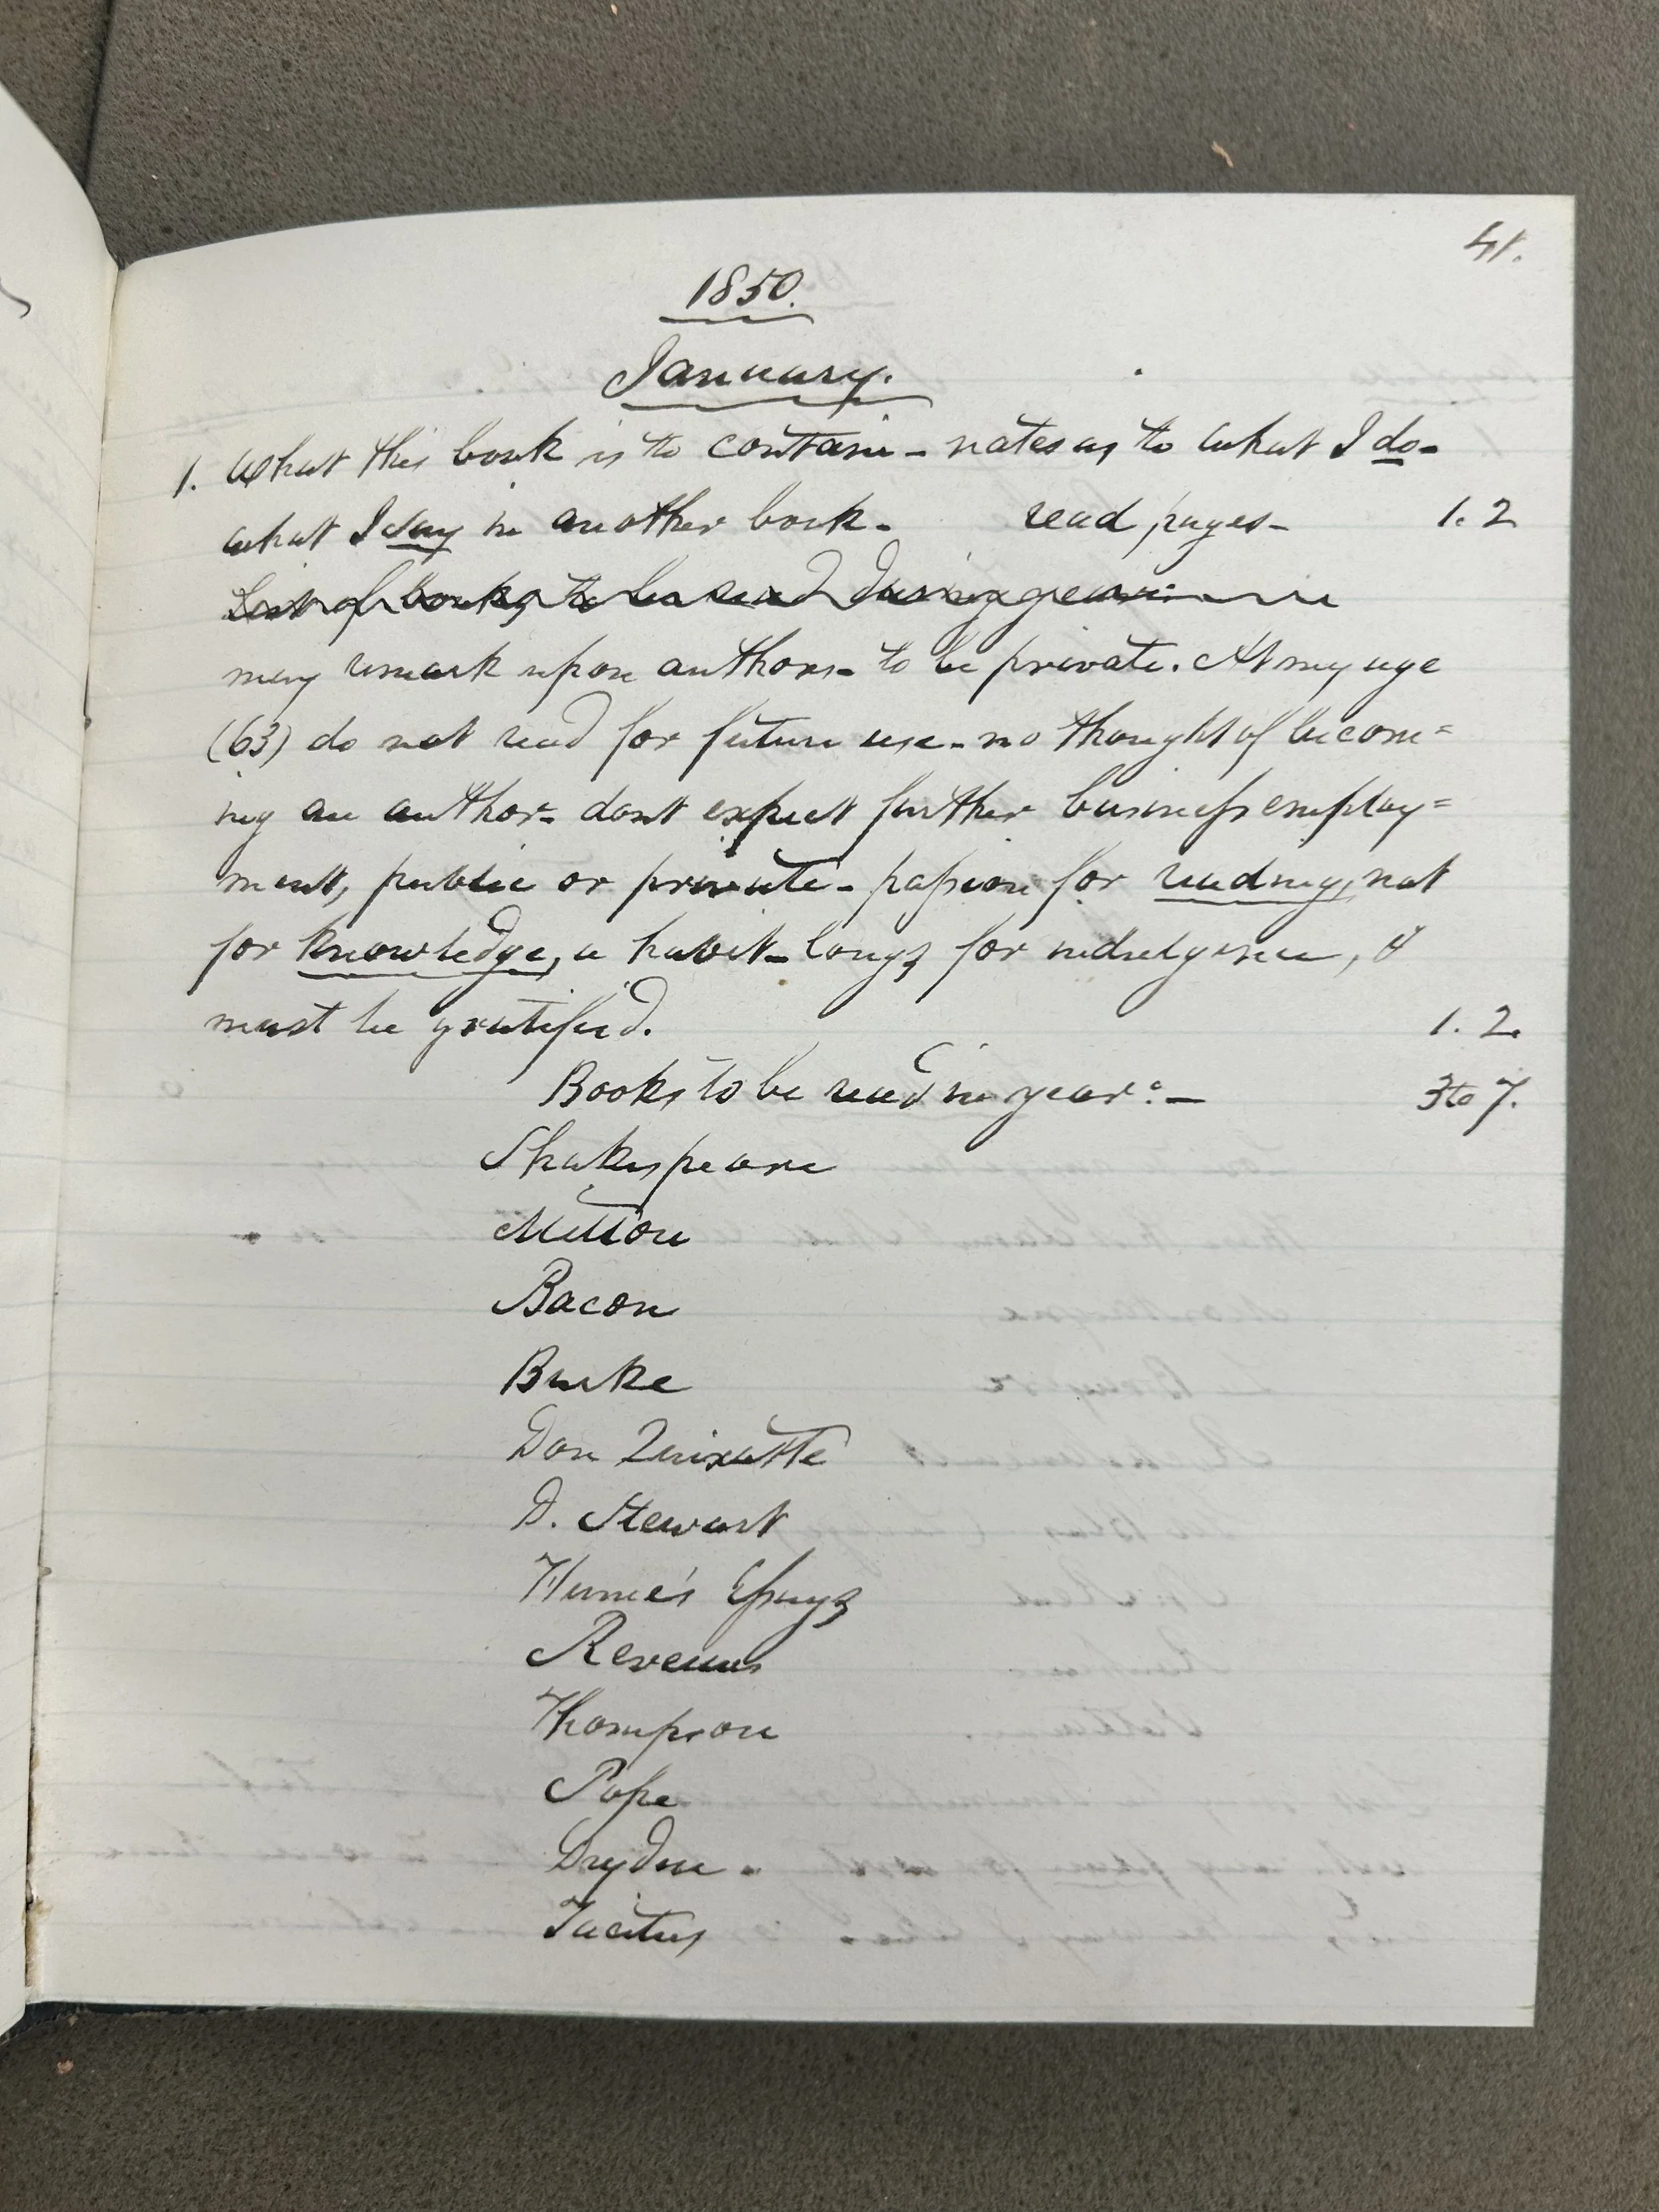 41.
1850.
January.
1. What this book is to contain - notes as to what I do -
what I say in another book - read pages - 1. 2
List of books to be read during year
may remark upon authors - to be private. At my age
(63) do not read for future use - no thought of becom=
ing an author - dont expect further business employ=
ment, public or private - passion for reading, not
for knowledge, a habit - longs for indulgence, &
must be gratified. 1. 2.
Books to be read in year: - 3 to 7.
Shakespeare
Milton
Bacon
Burke
Don Quixotte
D. Stewart
Hume's Essays
Thompson
Pope
Dryden.
Tacitus